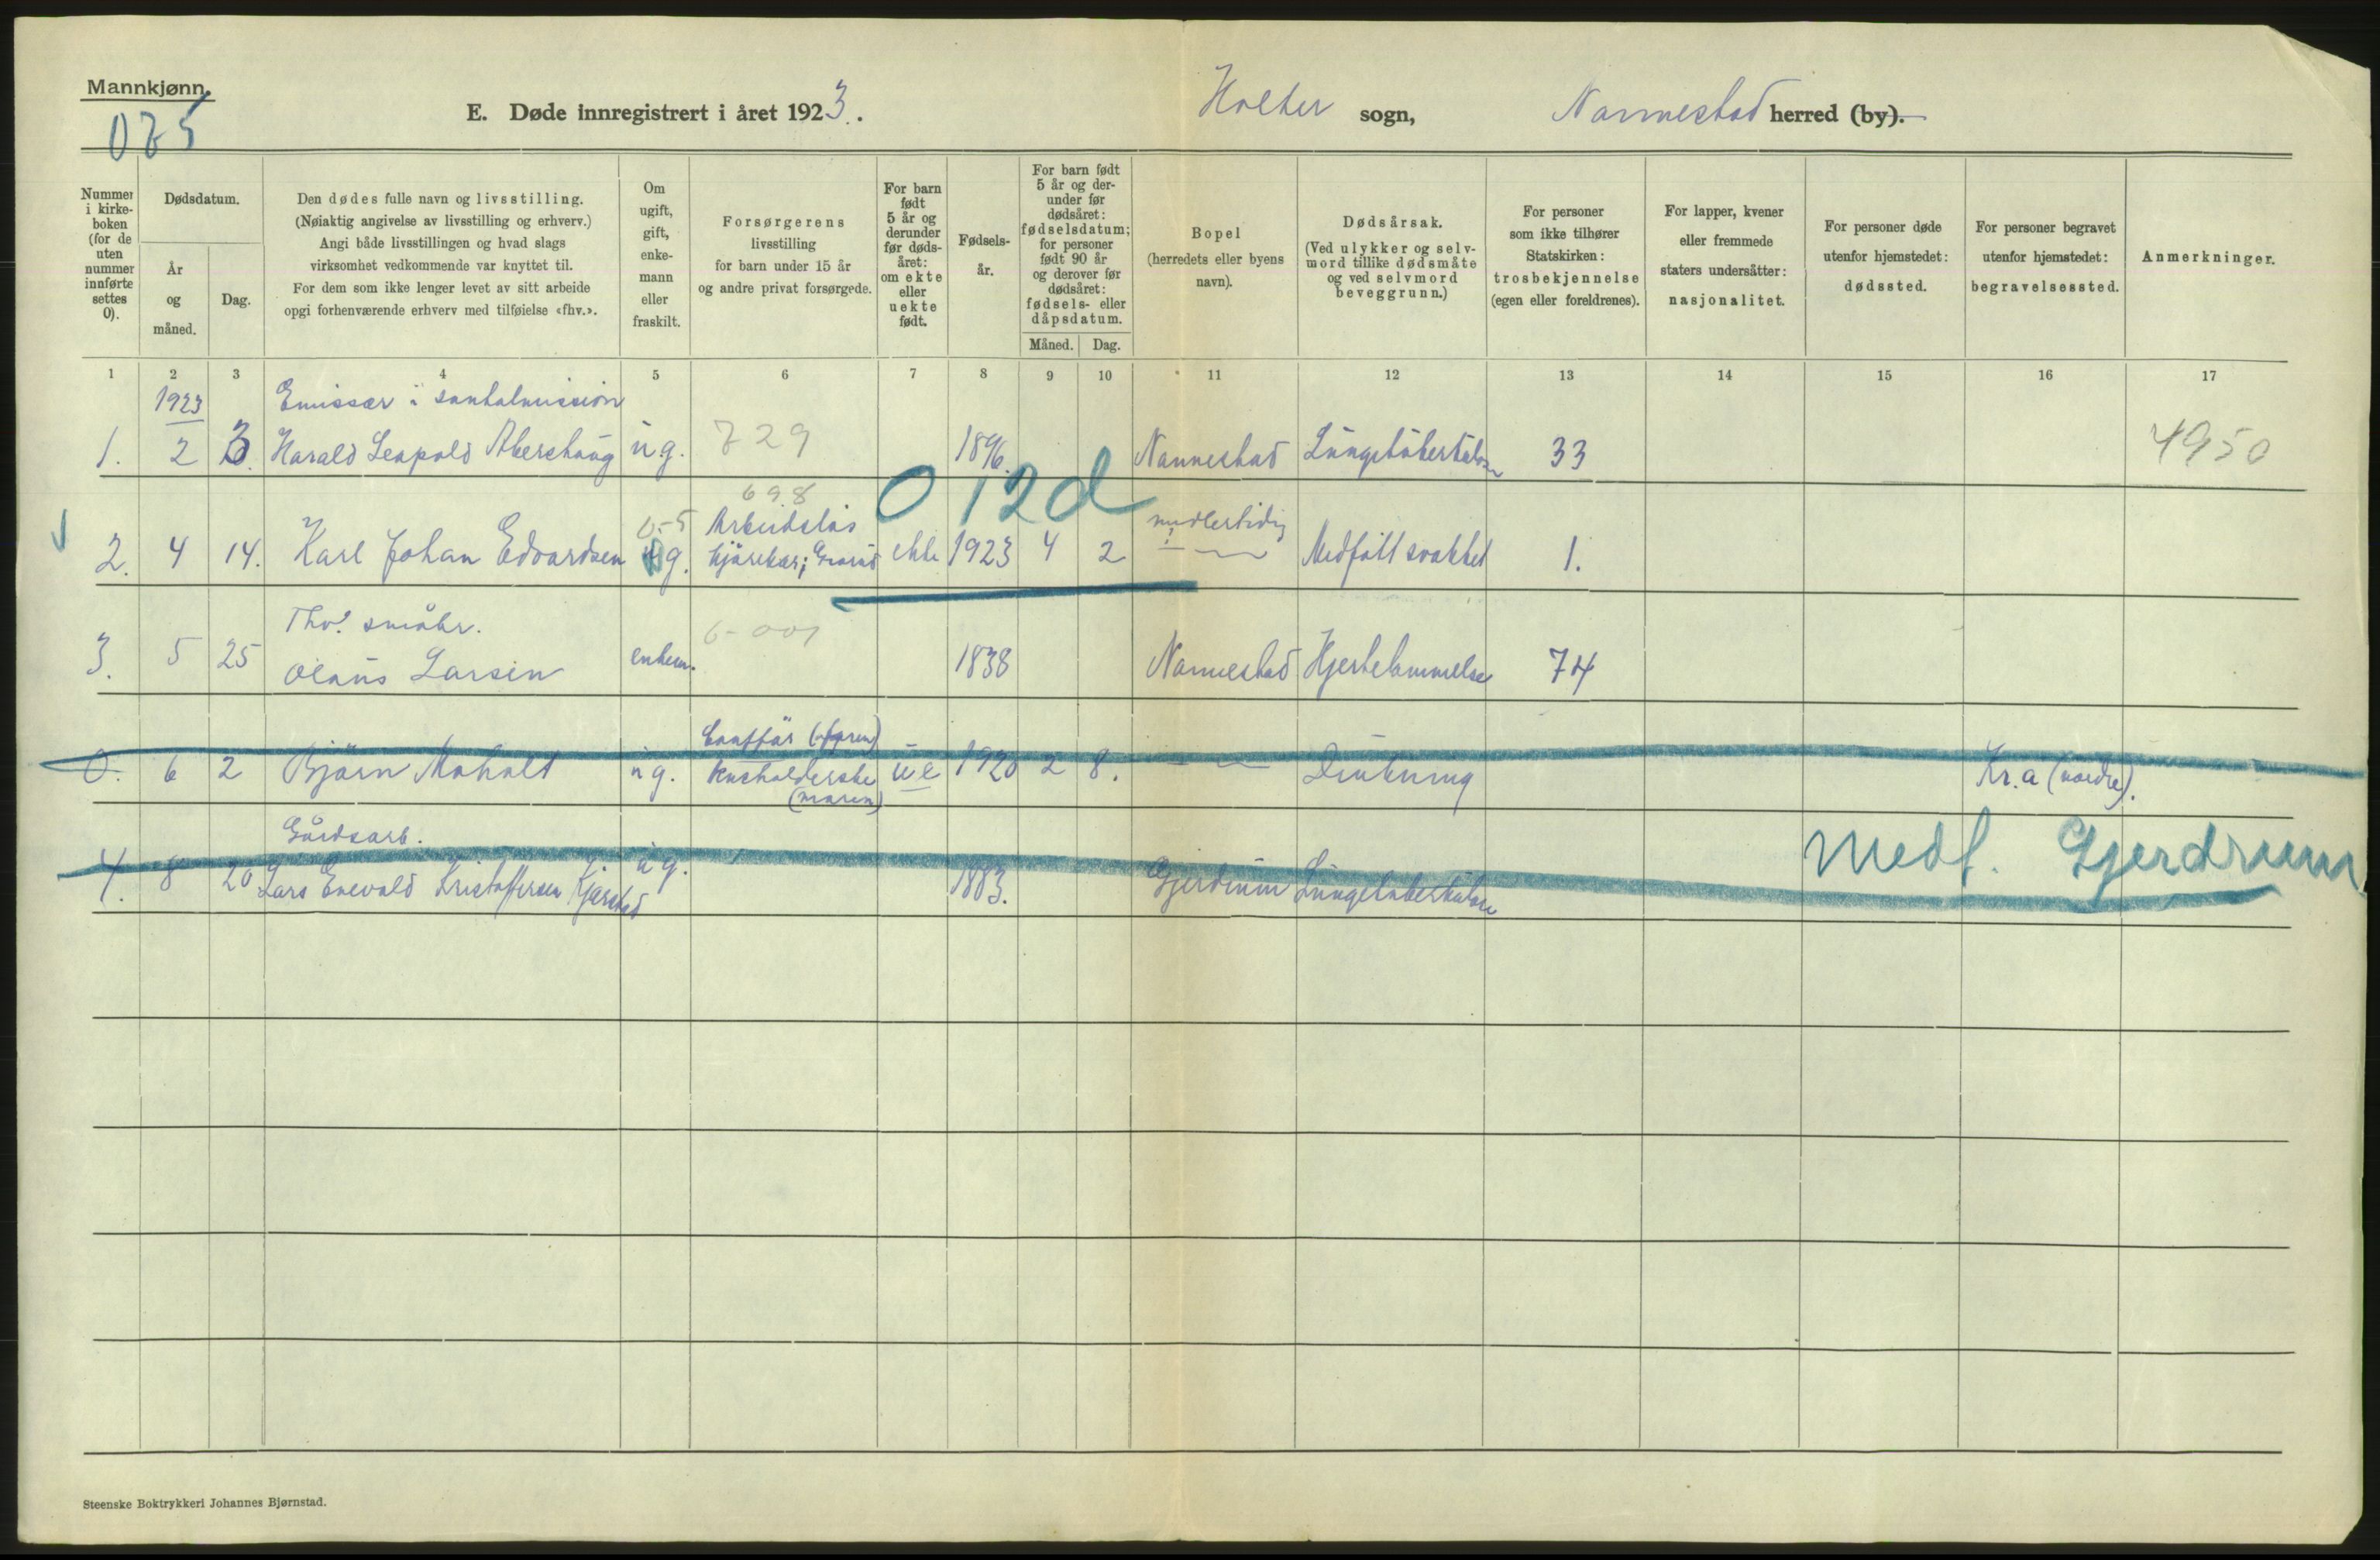 Mannkjønn.
025
E. Døde innregistrert i året 1923.
Holter sogn, Nannestad herred (by).
Nummer i kirke-boken (for de uten nummer innførte settes 0).
Dødsdatum.
År og måned.
Dag.
Den dødes fulle navn og livsstilling.
(Nøiaktig angivelse av livsstilling og erhverv.)
Angi både livsstillingen og hvad slags
virksomhet vedkommende var knyttet til.
For dem som ikke lenger levet av sitt arbeide
opgi forhenværende erhverv med tilføielse «fhv.».
Om ugift, gift, enke-mann eller fraskilt.
Forsørgerens
livsstilling
for barn under 15 år
og andre privat forsørgede.
For barn født 5 år og derunder før døds-året: om ekte eller uekte født.
Fødsels-år.
For barn født 5 år og der-under før dødsåret: fødselsdatum; for personer født 90 år og derover før dødsåret: fødsels- eller dåpsdatum.
Måned. Dag.
Bopel
(herredets eller byens
navn).
Dødsårsak.
(Ved ulykker og selv-
mord tillike dødsmåte
og ved selvmord
beveggrunn.)
For personer
som ikke tilhører
Statskirken:
trosbekjennelse
(egen eller foreldrenes).
For lapper, kvener
eller fremmede
staters undersåtter:
nasjonalitet.
For personer døde
utenfor hjemstedet:
dødssted.
For personer begravet
utenfor hjemstedet:
begravelsessted.
Anmerkninger.
1 2 3 4 5 6 7 8 9 10 11 12 13 14 15 16 17
1923 Emissær i santalmission
1. 2 3. Harald Leopold Aberehaug ug. 729 1896. Nannestad Lungetuberkulose 33 4950
012d
698
0-5 Arbeidsløs midlertidig
2. 4 14. Karl Johan Edvardsen ug. kjørekar; ekte 1923 4 2 Medfött svakhet 1.
Fhv. småbr. 6-001
3. 5 25 Olaus Larsen enkem. 1838 Nannestad Hjertelammelse 74
0. 6 2 Björn Moholt ug. husholderske ue 1920 2 8. Drukning Kr.a (nordre).
Gårdsarb. medf. Gjerdrum
4. 8 20 Lars Enevald Kristoffersen Kjærstad ug. 1883. Gjerdrum Lungetuberkulose
Steenske Boktrykkeri Johannes Bjørnstad.